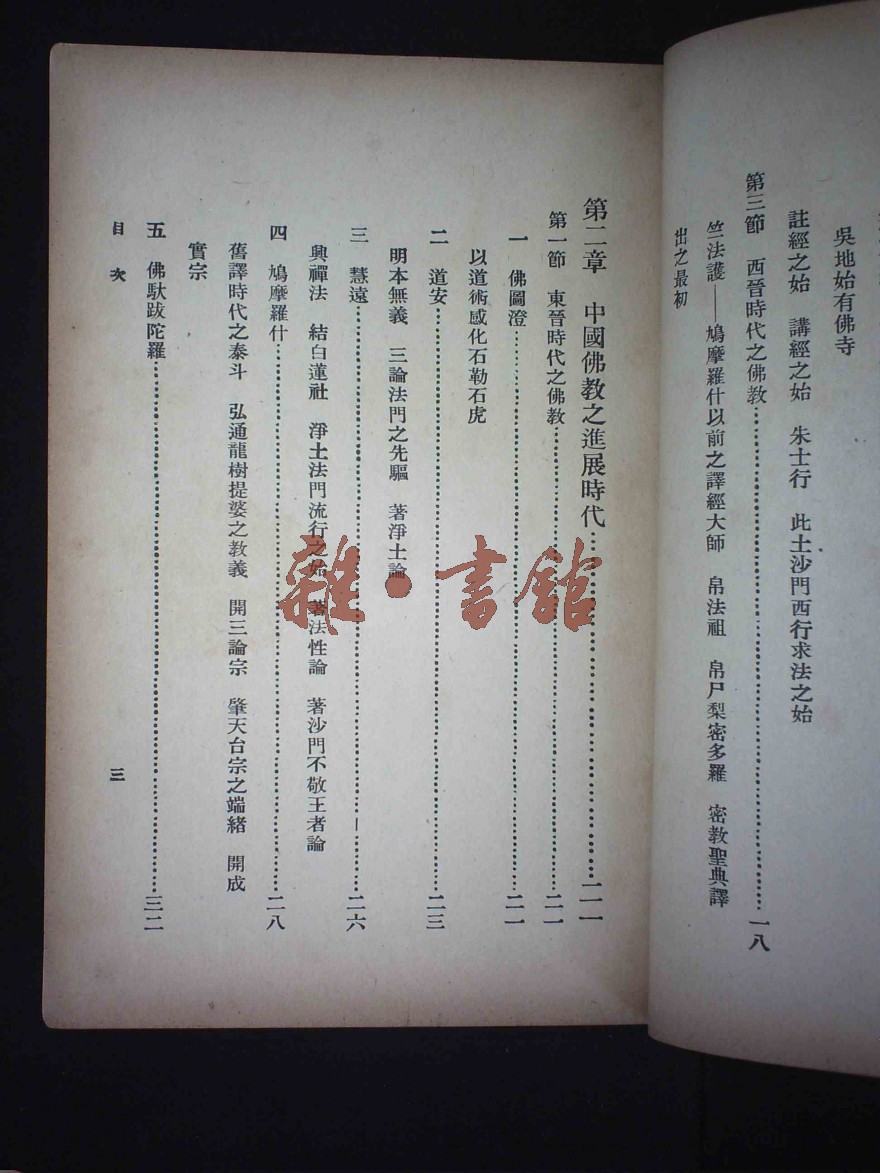 吳地始有佛寺
註經之始　講經之始　朱士行　此土沙門西行求法之始
第三節　西晉時代之佛教……一八
竺法護——鳩摩羅什以前之譯經大師　帛法祖　帛尸梨密多羅　密教聖典譯
出之最初
第二章　中國佛教之進展時代……二一
第一節　東晉時代之佛教……二一
一　佛圖澄……二一
以道術感化石勒石虎
二　道安……二三
明本無義　三論法門之先驅　著淨土論
三　慧遠……二六
興禪法　結白蓮社　淨土法門流行之始　著法性論　著沙門不敬王者論
四　鳩摩羅什……二八
舊譯時代之泰斗　弘通龍樹提婆之教義　開三論宗　肇天台宗之端緒　開成
實宗
五　佛馱跋陀羅……三二
目次
三
雜·書館